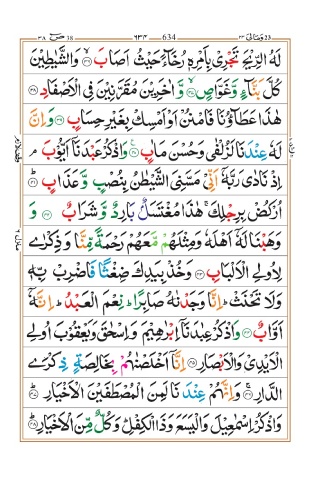 وَمَالِیَ ٢٣ 634 ٦٣٤ صٓ ٣٨
لَهُ الرِّیْحَ تَجْرِیْ بِاَمْرِهٖ رُخَآءً حَیْثُ اَصَابَ ﴿٣٦﴾ وَالشَّیٰطِیْنَ
كُلَّ بَنَّآءٍ وَّغَوَّاصٍ ﴿٣٧﴾ وَّاٰخَرِیْنَ مُقَرَّنِیْنَ فِی الْاَصْفَادِ ﴿٣٨﴾
هٰذَا عَطَآؤُنَا فَامْنُنْ اَوْ اَمْسِكْ بِغَیْرِ حِسَابٍ ﴿٣٩﴾ وَاِنَّ
لَهٗ عِنْدَنَا لَزُلْفٰی وَحُسْنَ مَاٰبٍ ﴿٤٠﴾ وَاذْكُرْ عَبْدَنَاۤ اَیُّوْبَ م
اِذْ نَادٰی رَبَّهٗۤ اَنِّیْ مَسَّنِیَ الشَّیْطٰنُ بِنُصْبٍ وَّعَذَابٍ ﴿٤١﴾
اُرْكُضْ بِرِجْلِكَ ۚ هٰذَا مُغْتَسَلٌۢ بَارِدٌ وَّشَرَابٌ ﴿٤٢﴾ وَ
وَهَبْنَا لَهٗۤ اَهْلَهٗ وَمِثْلَهُمْ مَّعَهُمْ رَحْمَةً مِّنَّا وَذِكْرٰی
لِاُولِی الْاَلْبَابِ ﴿٤٣﴾ وَخُذْ بِیَدِكَ ضِغْثًا فَاضْرِبْ بِّهٖ
وَلَا تَحْنَثْ ؕ اِنَّا وَجَدْنٰهُ صَابِرًا ؕ نِعْمَ الْعَبْدُ ؕ اِنَّهٗۤ
اَوَّابٌ ﴿٤٤﴾ وَاذْكُرْ عِبٰدَنَاۤ اِبْرٰهِیْمَ وَاِسْحٰقَ وَیَعْقُوْبَ اُولِی
الْاَیْدِیْ وَالْاَبْصَارِ ﴿٤٥﴾ اِنَّاۤ اَخْلَصْنٰهُمْ بِخَالِصَةٍ ذِكْرَی
الدَّارِ ﴿٤٦﴾ وَاِنَّهُمْ عِنْدَنَا لَمِنَ الْمُصْطَفَیْنَ الْاَخْیَارِ ﴿٤٧﴾
وَاذْكُرْ اِسْمٰعِیْلَ وَالْیَسَعَ وَذَا الْكِفْلِ ؕ وَكُلٌّ مِّنَ الْاَخْیَارِ ﴿٤٨﴾